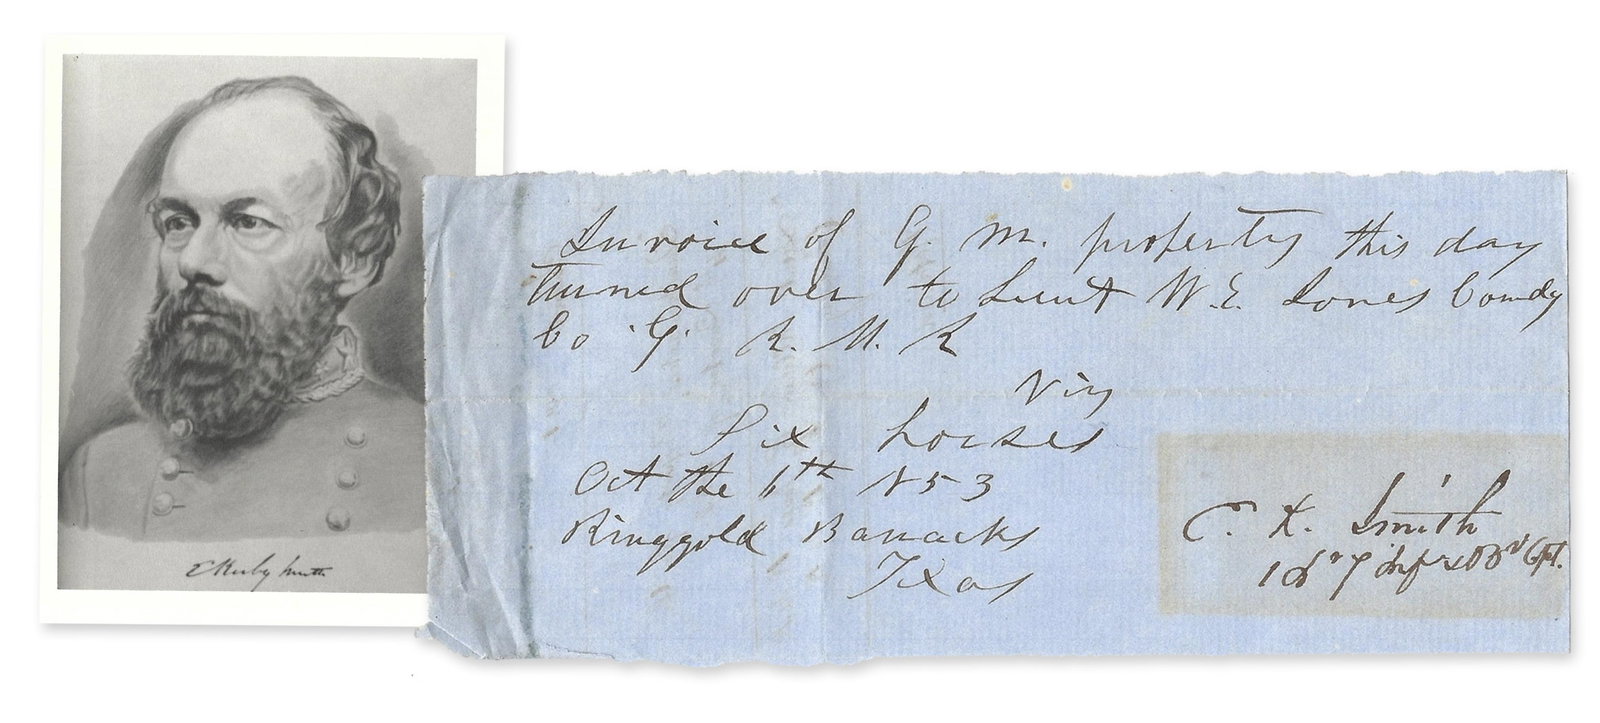 E Kirby Smith
Invoice of Q. M. property this day
turned over to Lieut W. E. Jones Comdg
Co. G. R. M. R
Viz
Six horses
Oct the 6th 1853
Ringgold Barracks
Texas
E. K. Smith
7 Inf